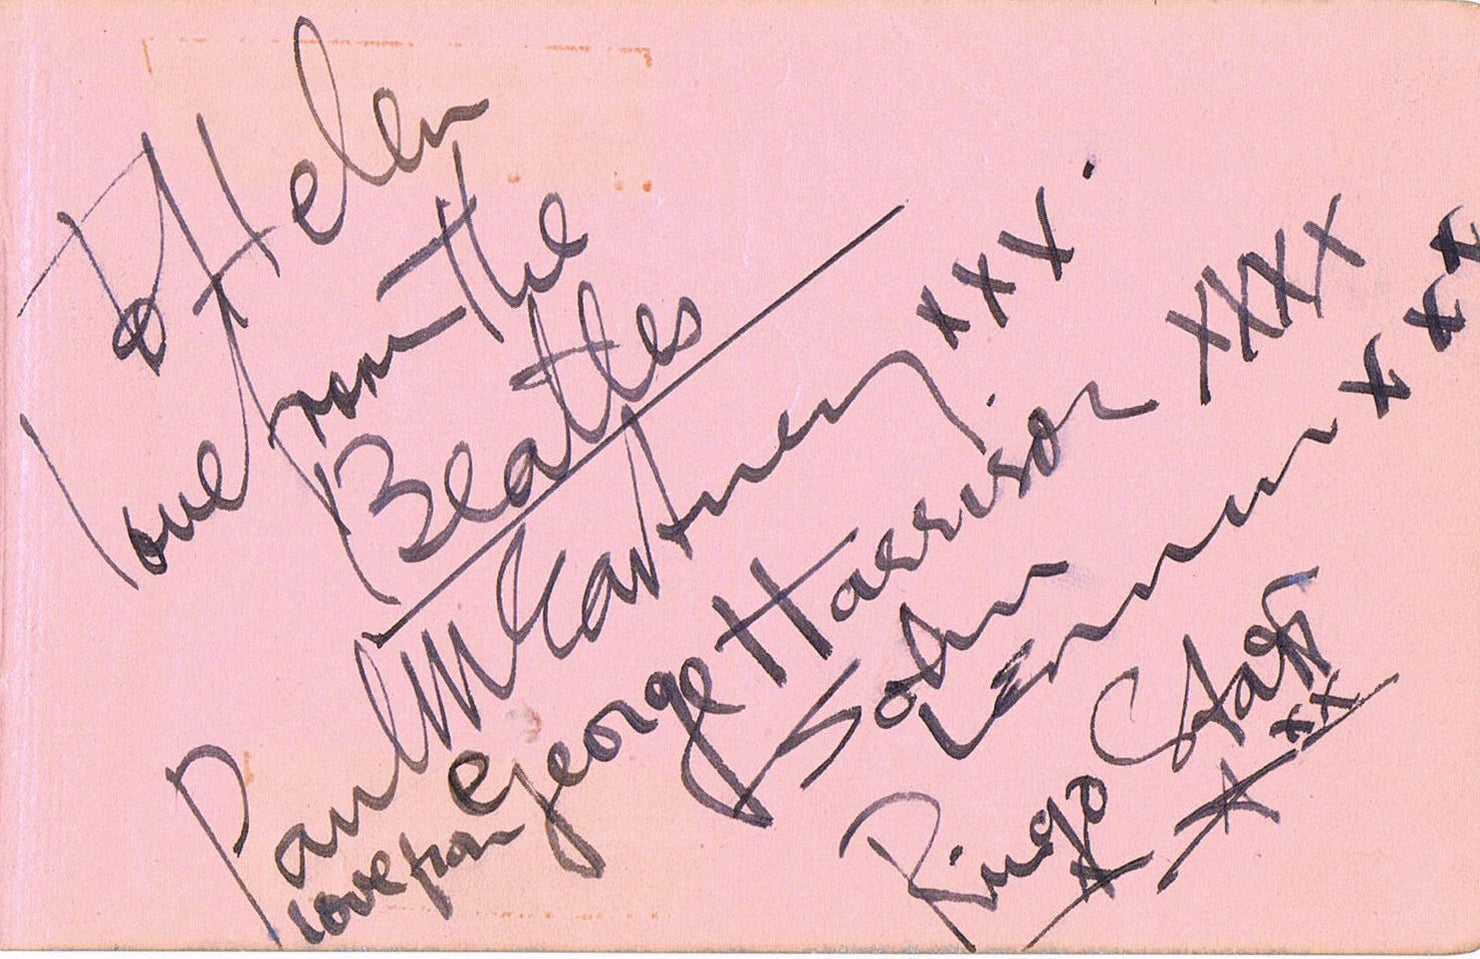 To Helen
love from the
Beatles
Paul McCartney xxx.
love from George Harrison XXXX
John
Lennon xxx
Ringo Starr
xx